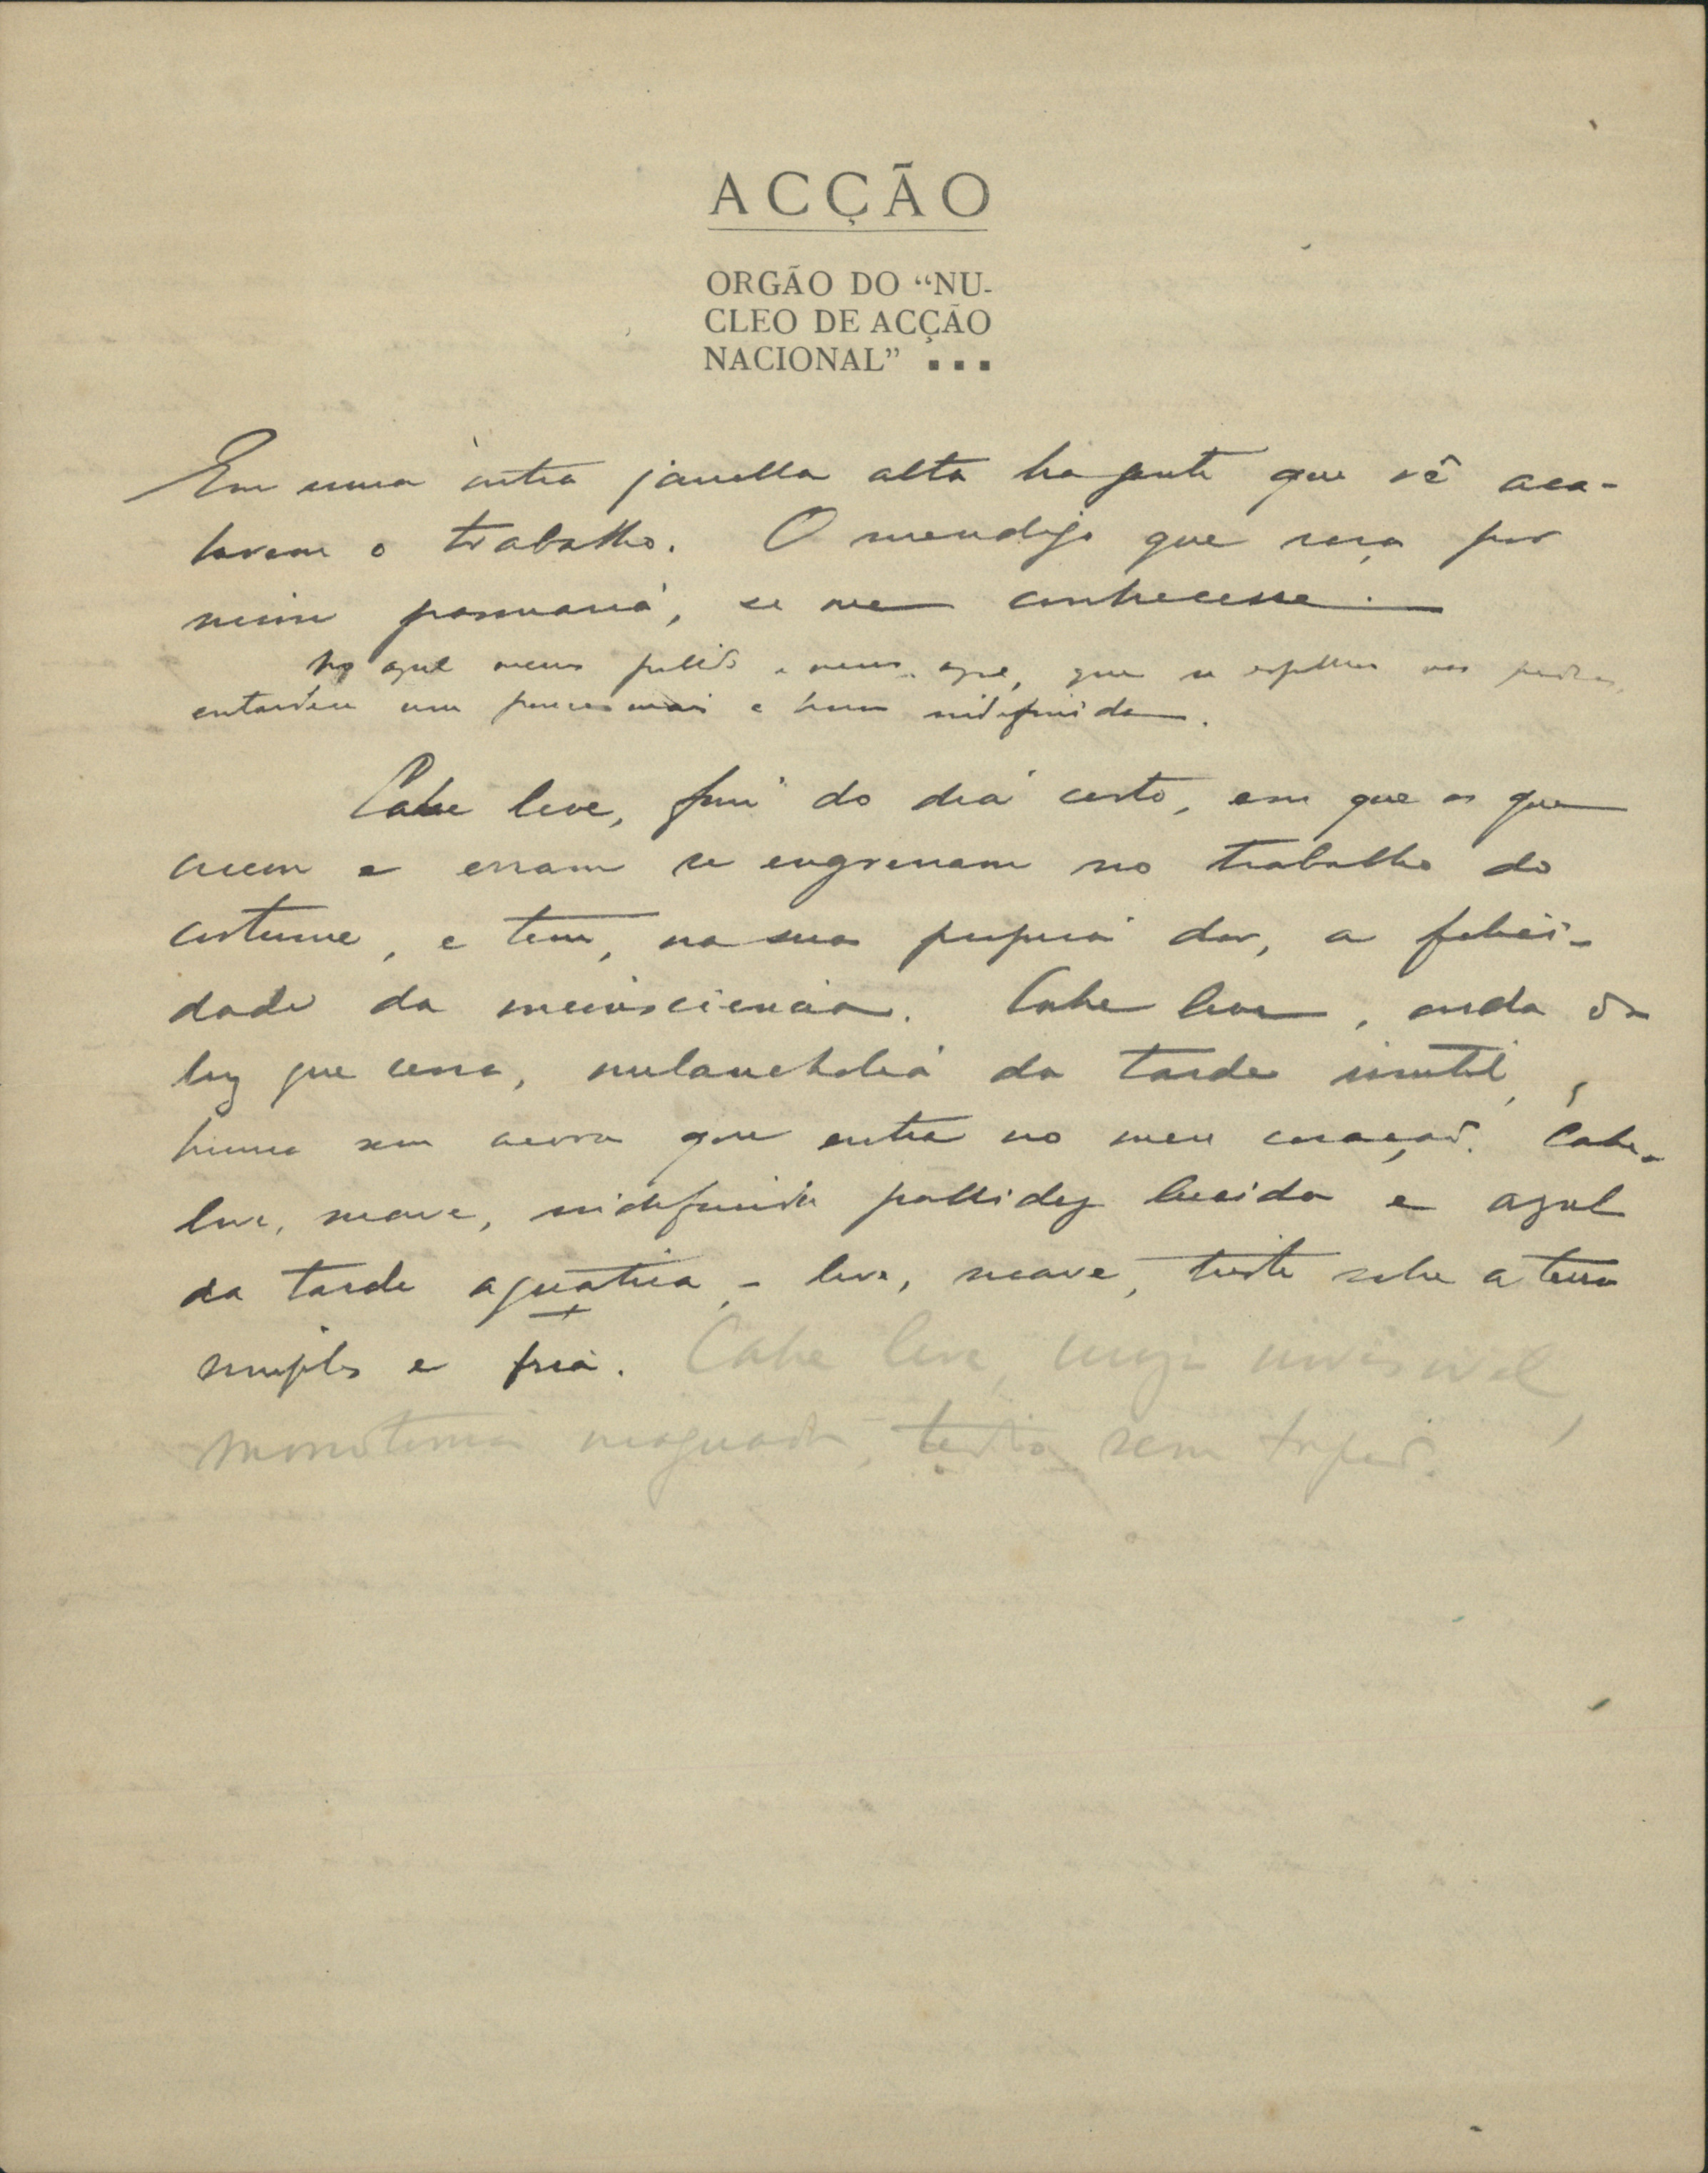 ACÇÃO
ORGÃO DO “NU-
CLEO DE ACÇÃO
NACIONAL” ▪ ▪ ▪
Em uma outra janella alta ha gente que vê aca-
barem o trabalho. O mendigo que roça por
mim pasmaria, se me conhecesse.
No azul menos pallido e menos azul, que se espelha nos predios,
entardece um pouco mais a hora indefinida.
Cahe leve, fim do dia certo, em que os que
crem e erram se engrenam no trabalho do
costume, e teem, na sua propria dor, a felici-
dade da inconsciencia. Cahe leve, onda da
luz que cessa, melancholia da tarde inutil,
bruma sem nevoa que entra no meu coração. Cahe
leve, suave, indefinida pallidez lucida e azul
da tarde aquatica – leve, suave, triste sobre a terra
simples e fria. Cahe leve, cinza invisivel,
monotonia magoada, tedio sem torpor.